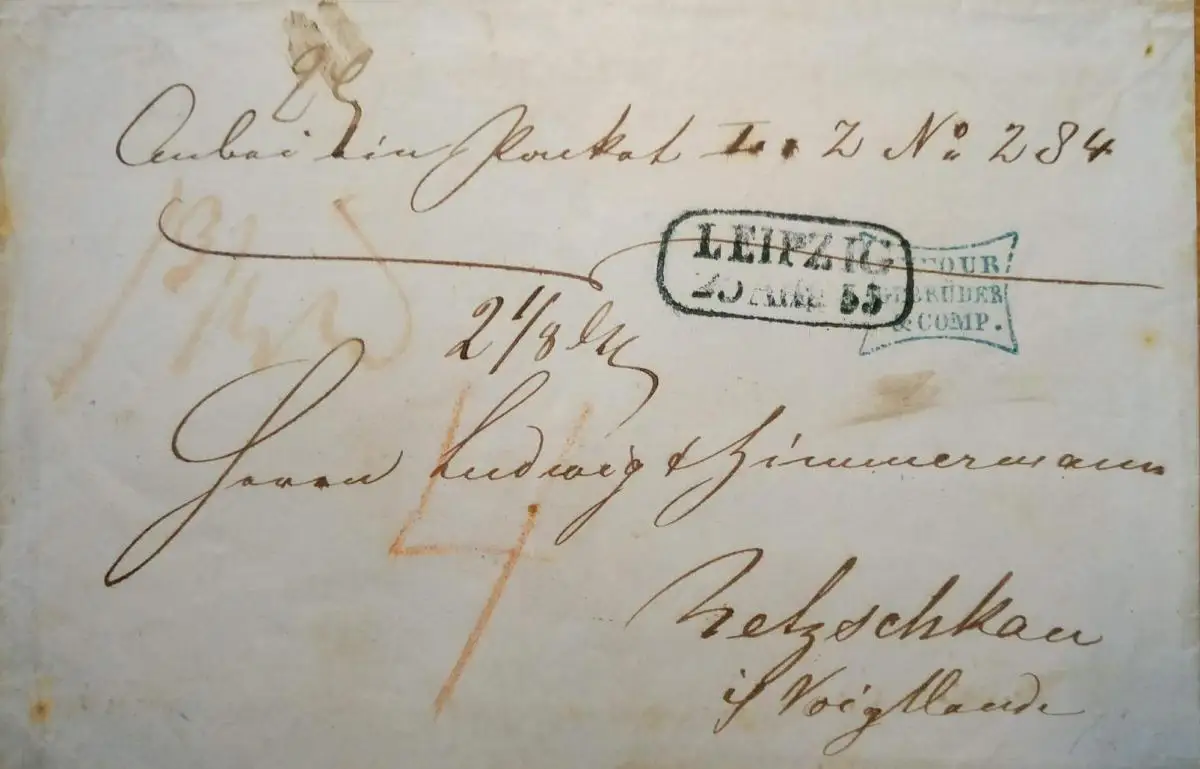 Anbei ein Packet L. Z No 284
LEIPZIG
25 AUG 55
GEBRÜDER
& COMP.
2 1/8
4
Herrn Ludwig & Zimmermann
Netzschkau
i/ Voigtlande